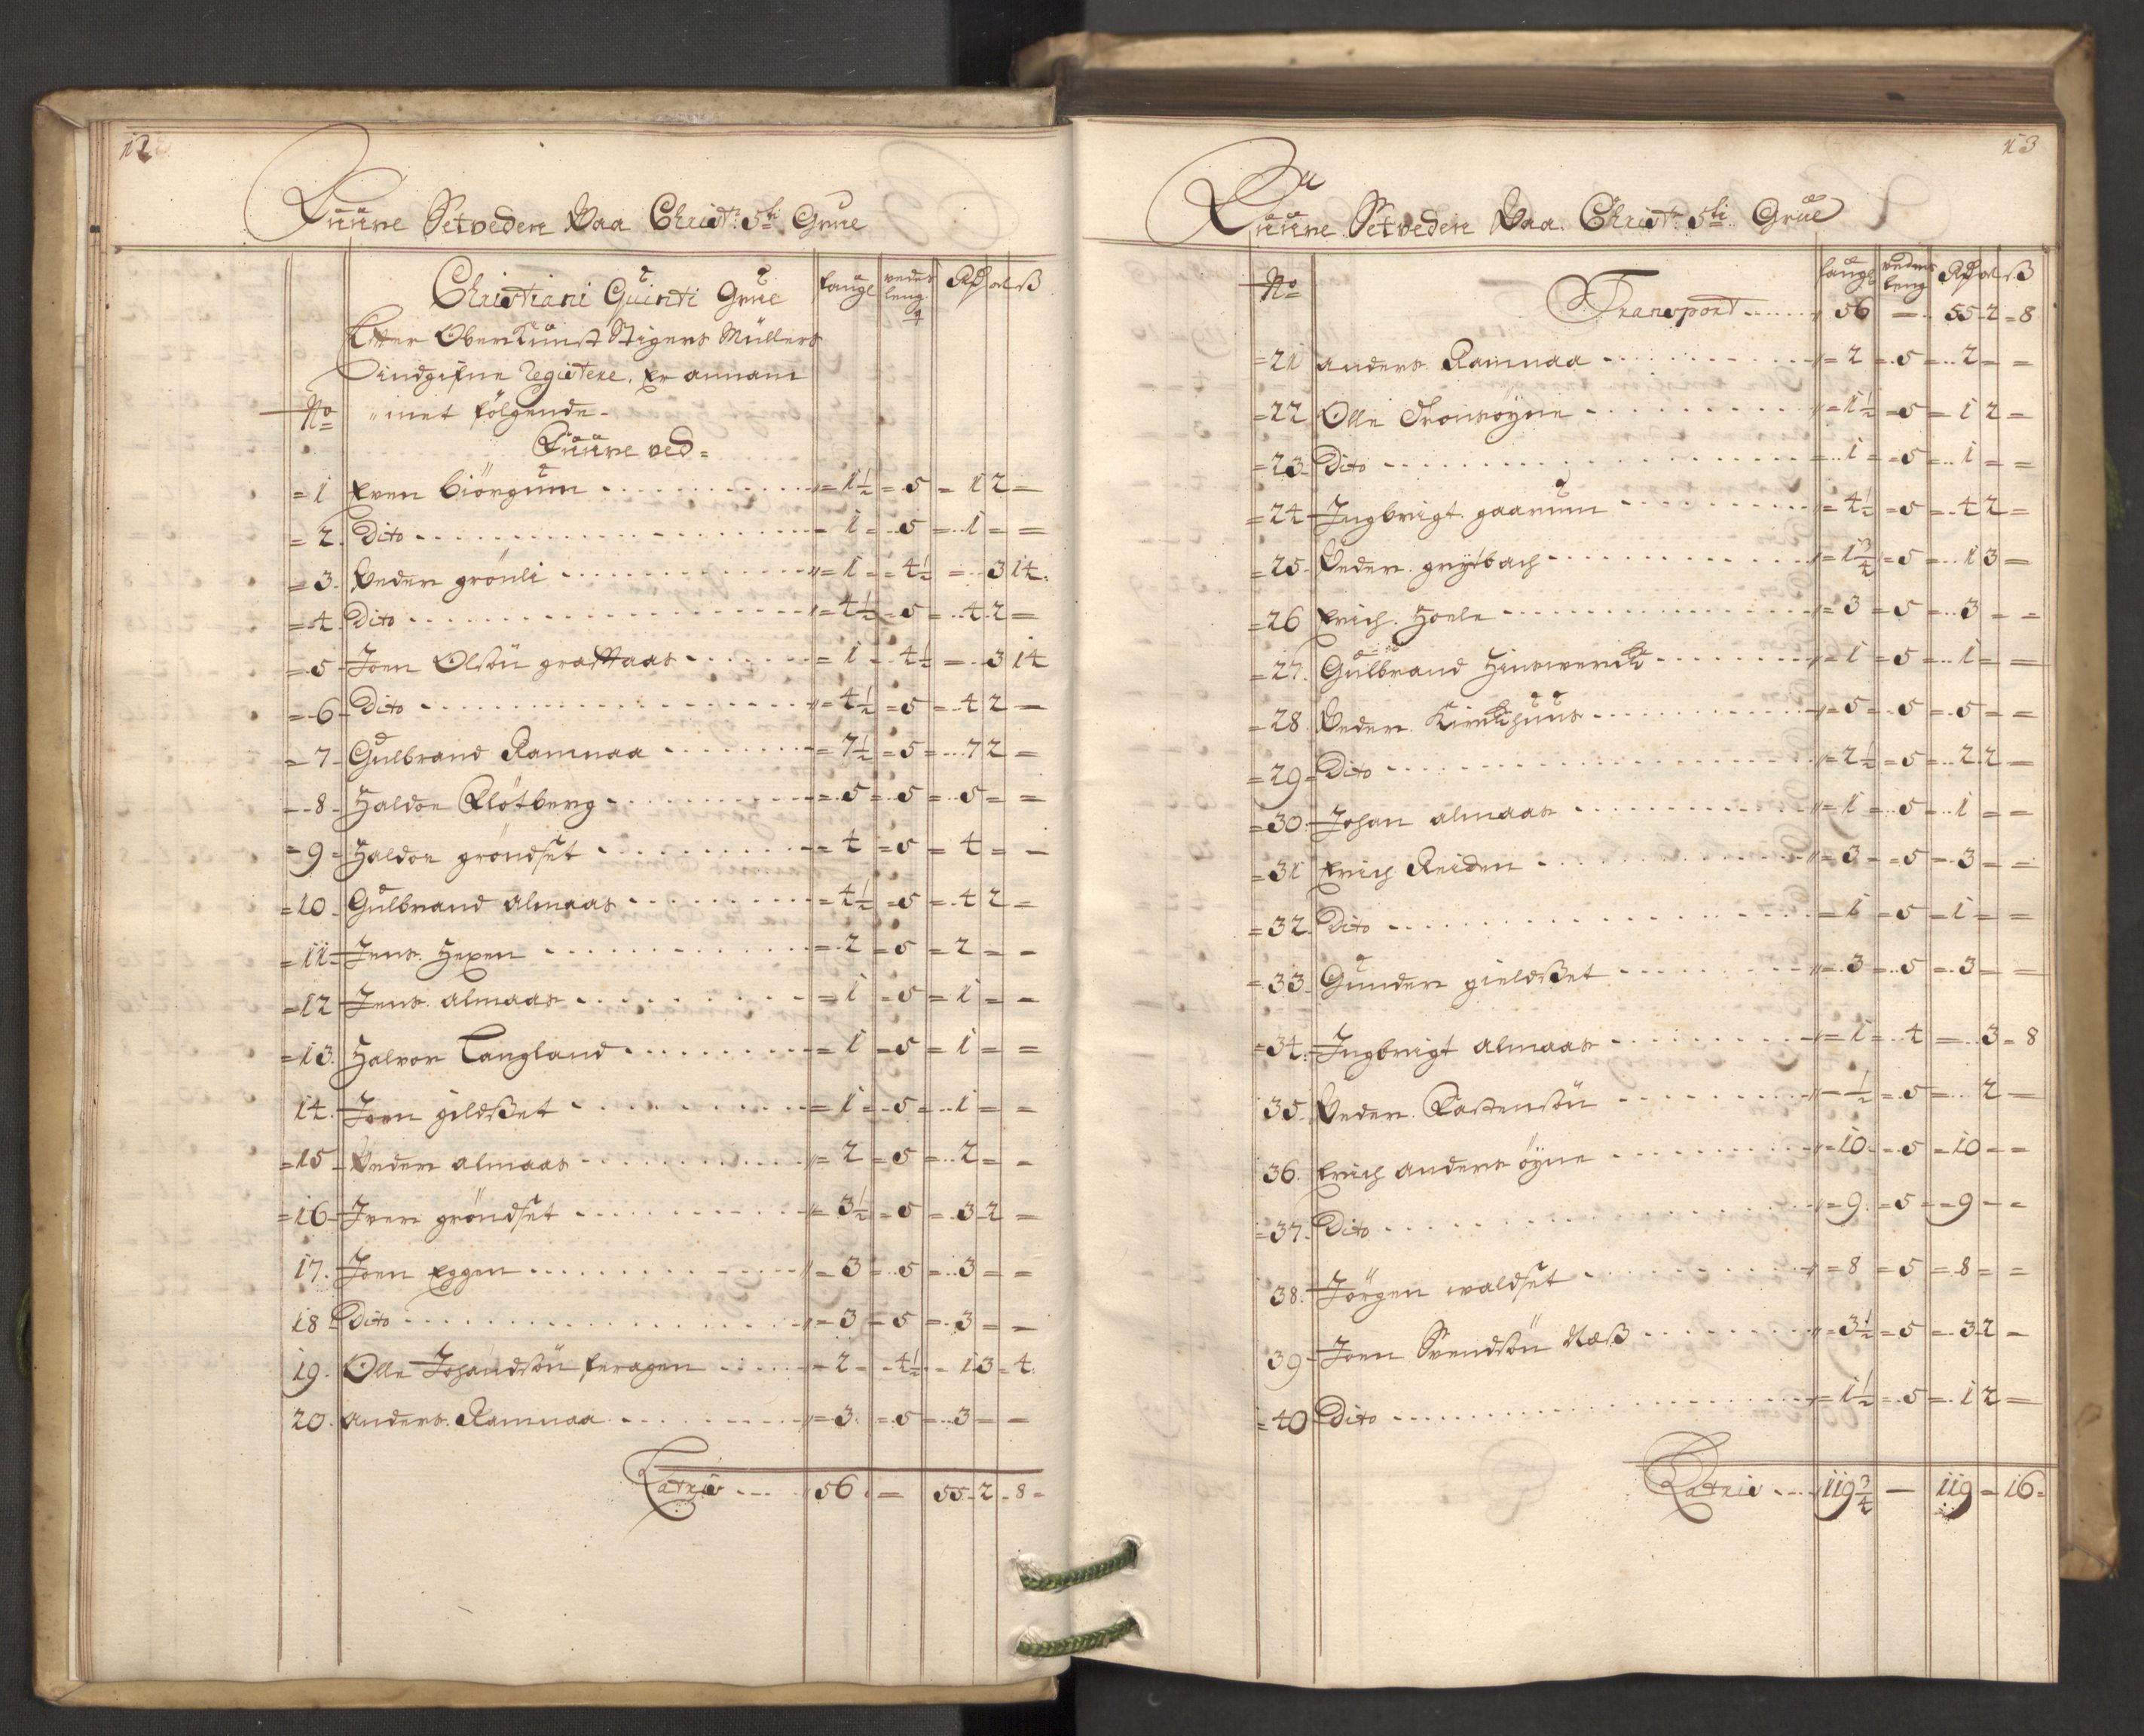 12
Fuure Setveden Paa Christ: 5ti Grue
Christiani Quinti Grue faugl veder leng Rd ort ß
Efter OberKunst Stigers Müllers
indgifne Registere, Er annam
No met fölgende.
Fuure ved =
= 1 Even Biörgum = 1½ = 5 = 1 2 =
= 2 Dito = 1 = 5 = 1 = =
= 3 Peder grönli = 1 = 4½ = 3 14
= 4 Dito = 4½ = 5 = 4 2 =
= 5 Joen Olsön graaaas = 1 = 4½ = 3 14
= 6 Dito = 4½ = 5 = 4 2 =
= 7 Gulbrand Ramnaa = 7½ = 5 = 7 2 =
= 8 Haldor Flötberg = 5 = 5 = 5 = =
= 9 Haldor gröndset = 4 = 5 = 4 = =
= 10 Gulbrand almaas = 4½ = 5 = 4 2 =
= 11 Jens Hexen = 2 = 5 = 2 = =
= 12 Jens almaas = 1 = 5 = 1 = =
= 13 Halvor Langland = 1 = 5 = 1 = =
14. Joen gildßet = 1 = 5 = 1 = =
= 15 Peder almaas = 2 = 5 = 2 = =
= 16 Iver gröndset = 3½ = 5 = 3 2 =
17. Joen Eggen = 3 = 5 = 3 = =
18 Dito = 3 = 5 = 3 = =
19. Olle Johandsön feragen = 2 = 4½ = 1 3 = 4
20. anders Ramnaa = 3 = 5 = 3 = =
Latris 56 = 55 = 2 = 8 =
13
Fuure Setveden Paa Christ: 5ti Grue
No faugl veder leng Rd ort ß
Transport 56 — 55 = 2 = 8
= 21 anders Ramnaa = 2 = 5 = 2 = =
= 22 Olle Tronsöyne = 1½ = 5 = 1 2 =
= 23 Dito = 1 = 5 = 1 = =
= 24 Ingbrigt gaarum = 4½ = 5 = 4 2 =
= 25 Peder grytbach = 1¾ = 5 = 1 3 =
= 26 Erich Hoele = 3 = 5 = 3 = =
= 27 Gulbrand = 1 = 5 = 1 = =
= 28 Peder Kirckhuus = 5 = 5 = 5 = =
= 29 Dito = 2½ = 5 = 2 2 =
= 30 Johan almaas = 1 = 5 = 1 = =
= 31 Erich Reiden = 3 = 5 = 3 = =
= 32 Dito = 1 = 5 = 1 = =
= 33 Gunder gieldßet = 3 = 5 = 3 = =
= 34 Ingbrigt almaas = 1 = 4 = 3 = 8
35. Peder Rastensön = ½ = 5 = 2 =
36. Erich anders öyne = 10 = 5 = 10 = =
= 37 Dito = 9 = 5 = 9 = =
38. Jörgen waldset = 8 = 5 = 8 = =
39 Joen Svendsön Næß = 3½ = 5 = 3 2 =
= 40 Dito = 1½ = 5 = 1 2 =
Latris 119¾ — 119 = 16 =